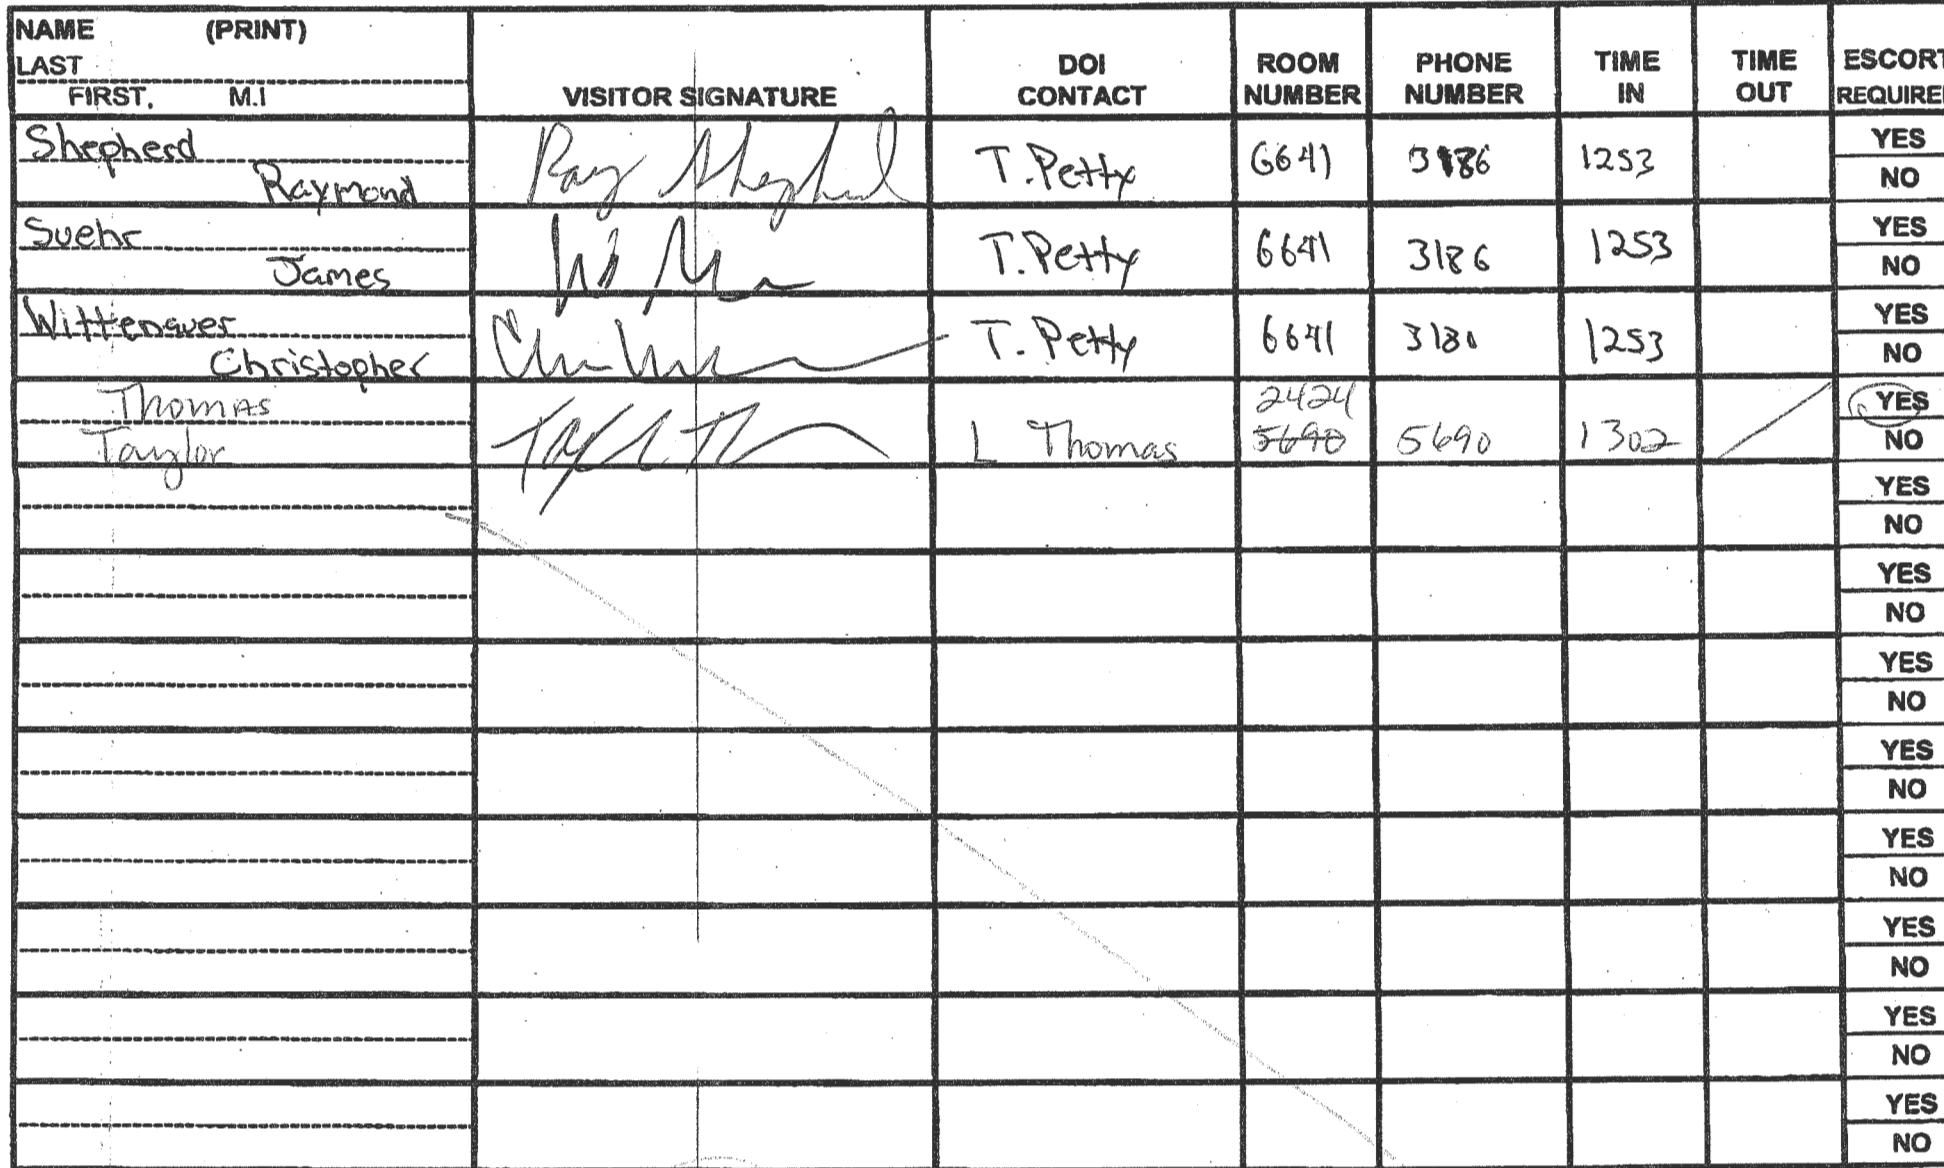 NAME (PRINT)
LAST
FIRST, M.I
VISITOR SIGNATURE
DOI CONTACT
ROOM NUMBER
PHONE NUMBER
TIME IN
TIME OUT
ESCORT REQUIRED
Shepherd
Raymond
Ray Shepherd
T. Petty 6641 3186 1253
YES
NO
Suehr
James
T. Petty 6641 3186 1253
YES
NO
Wittenauer
Christopher
T. Petty 6641 1253
YES
NO
Thomas
Taylor
2424
L Thomas 5690 5690 1302
YES
NO
YES
NO
YES
NO
YES
NO
YES
NO
YES
NO
YES
NO
YES
NO
YES
NO